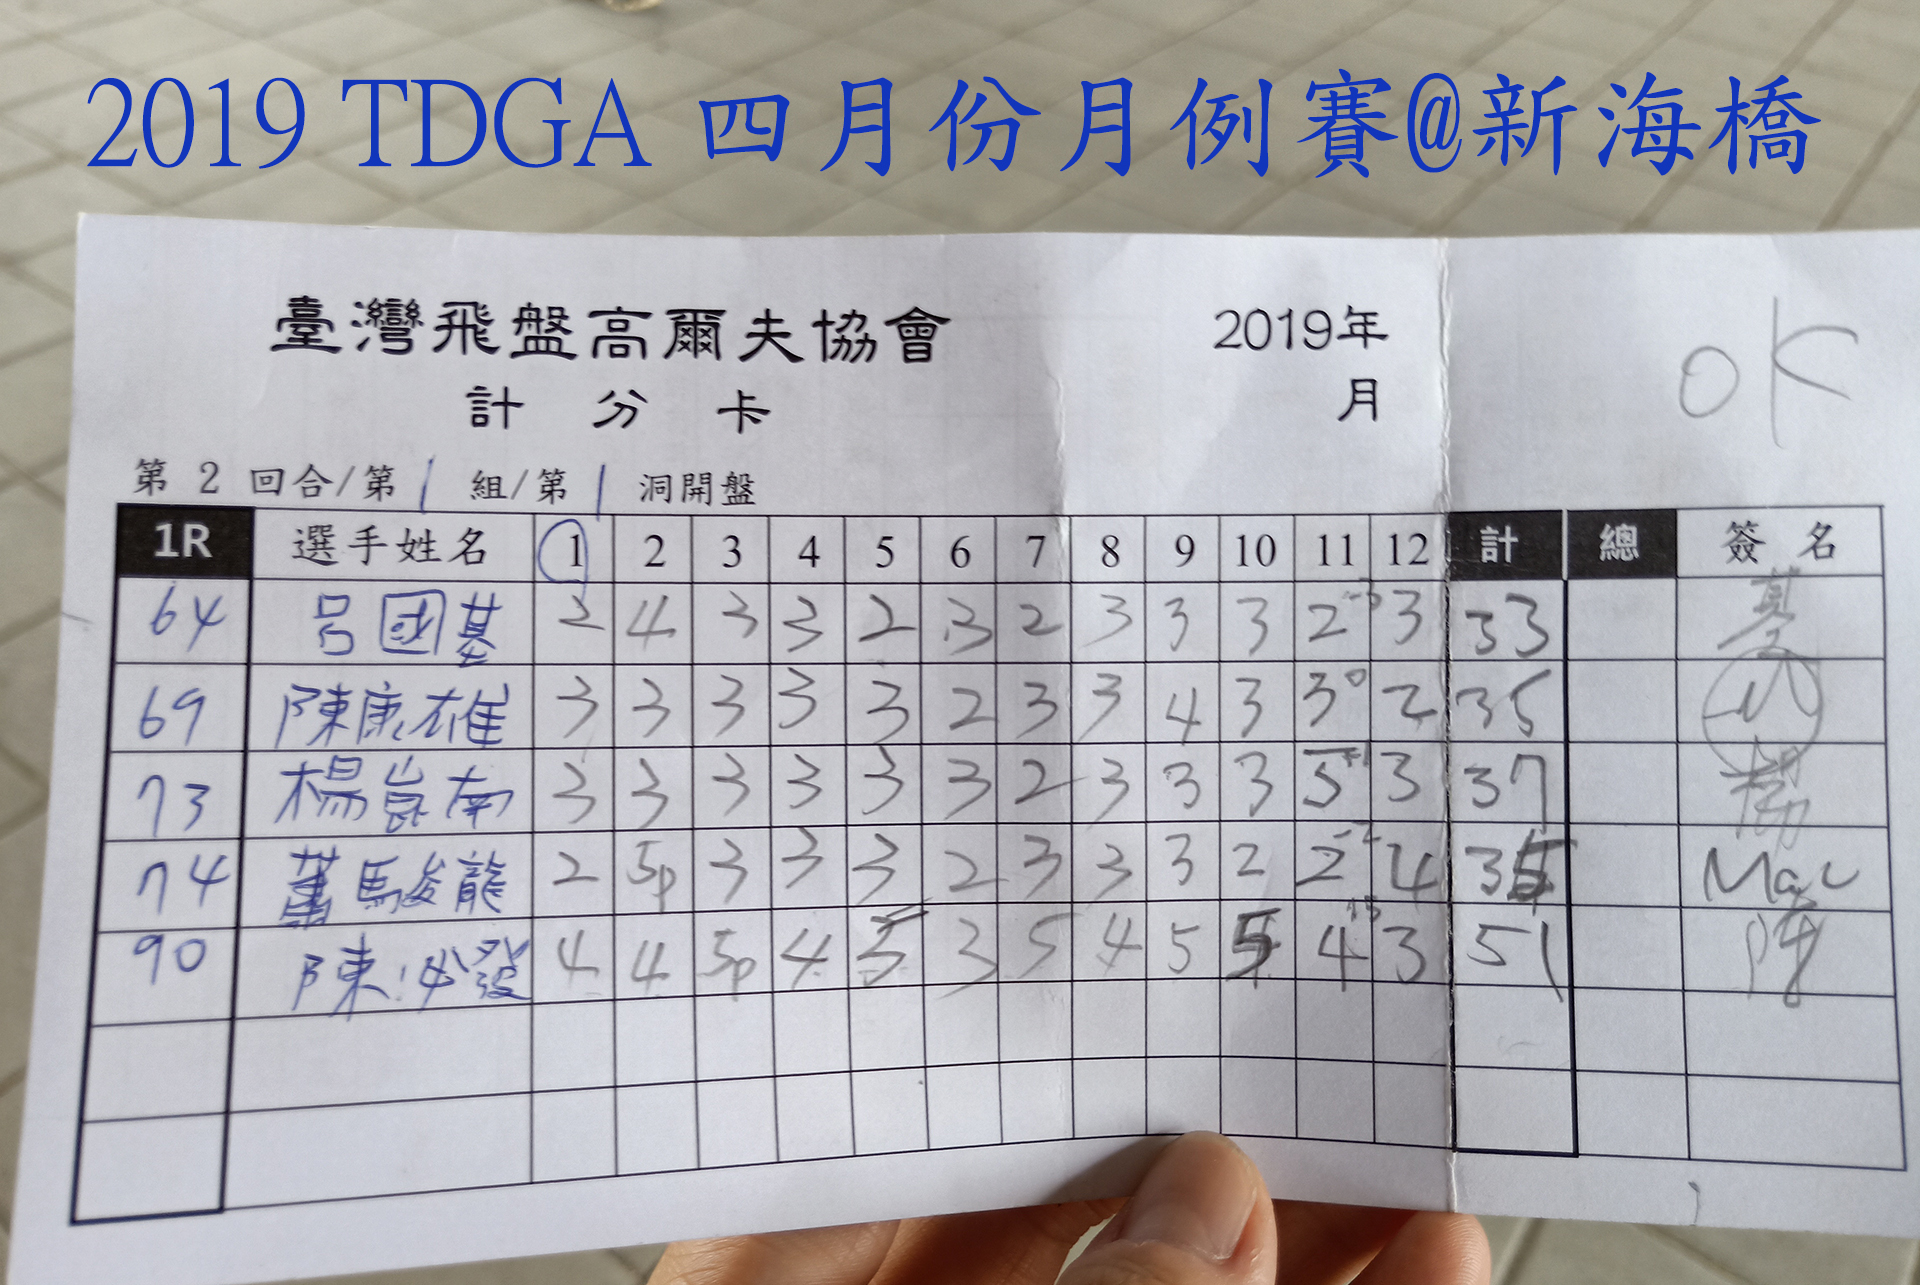 2019 TDGA 四月份月例賽@新海橋
臺灣飛盤高爾夫協會 2019年
計 分 卡 月
OK
第 2 回合/第 1 組/第 1 洞開盤
1R 選手姓名 1 2 3 4 5 6 7 8 9 10 11 12 計 總 簽 名
64 呂國基 2 4 3 3 2 3 2 3 3 3 2 -3 3 33 基
69 陳康雄 3 3 3 3 3 2 3 3 4 3 3 0 2 35
73 楊崑南 3 3 3 3 3 3 2 3 3 3 5 +1 3 37 楊
74 萬馬駿龍 2 5p 3 3 3 2 3 3 3 2 2 -2 4 35
90 陳必發 4 4 5p 4 5 3 5 4 5 5 4 +15 3 51 陳